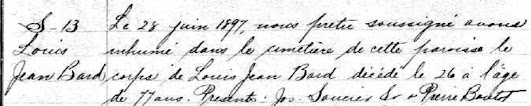 S-13
Louis
Jean Bard
Le 28 juin 1897, nous pretre soussigné avons
inhumé dans le cimetière de cette paroisse le
corps de Louis Jean Bard décédé le 26 à l'âge
de 77 ans. Presents: Jos. Soucier Sr & Pierre Boutot